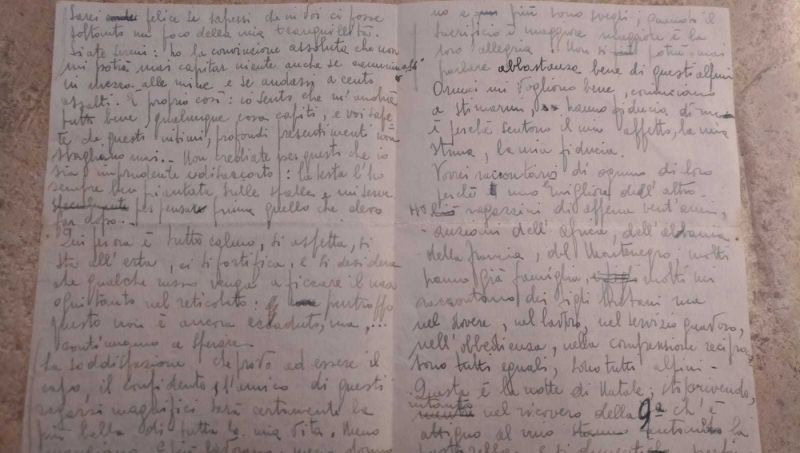 Sarei felice se sapessi che in voi ci fosse
soltanto un poco della mia tranquillità.
Siate sereni: ho la convinzione assoluta che non
mi potrà mai capitar niente anche se camminassi
in mezzo alle mine e se andassi a cento
assalti. È proprio così: io sento che m'andrà
tutto bene, qualunque cosa capiti, e voi sape-
te che questi intimi, profondi presentimenti non
sbagliano mai. Non crediate per questo che io
sia imprudente: la testa l'ho
sempre ben piantata sulle spalle e mi serve
per pensare prima quello che devo
far dopo.
Qui per ora è tutto calmo, si aspetta, si
sta all'erta, ci si fortifica, e si desidera
che qualche russo venga a ficcare il naso
ogni tanto nel reticolato: purtroppo
questo non è ancora accaduto, ma, ...
continuiamo a sperare.
La soddisfazione che provo ad essere il
capo, il confidente, l'amico di questi
ragazzi magnifici sarà certamente la
più bella di tutta la mia vita. Meno
mangiano e più lavorano, meno dormo
no e più sono svegli; quando il
sacrificio è maggiore maggiore è la
loro allegria. Non si potrà mai
parlare abbastanza bene di questi alpini
Ormai mi vogliono bene, cominciano
a stimarmi, hanno fiducia di me
è perché sentono il mio affetto, la mia
stima, la mia fiducia.
Vorrei raccontarvi di ognuno di loro
perché uno migliore dell'altro.
Ho ragazzini di appena vent'anni,
anziani dell'Africa, dell'Albania
della Francia, del Montenegro, molti
hanno già famiglia, molti mi
raccontano dei figli lontani ma
nel dovere, nel lavoro, nel servizio gravoso,
nell'obbedienza, nella comprensione recipro
sono tutti eguali, sono tutti alpini.
Questa è la notte di Natale: sto scrivendo,
intanto nel ricovero della 9ª ch'è
attiguo al mio la